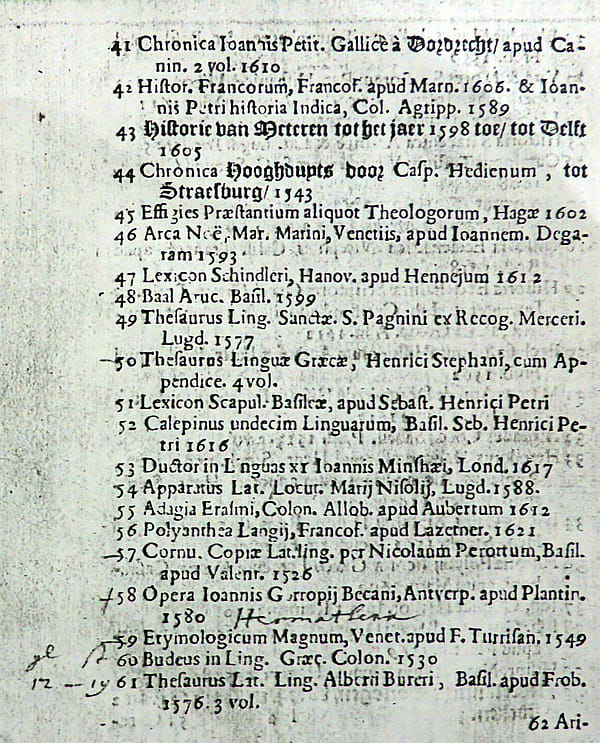 41 Chronica Ioannis Petit. Gallicè à Dordrecht/ apud Ca-
nin. 2 vol. 1610.
42 Histor. Francorum, Francof. apud Marn. 1606. & Ioan-
nis Petri historia Indica, Col. Agripp. 1589
43 Historie van Meteren tot het jaer 1598 toe/ tot Delft
1605
44 Chronica Hooghdupts door Casp. Hedienum, tot
Straesburg/ 1543
45 Effigies Præstantium aliquot Theologorum, Hagæ 1602
46 Arca Noë, Mar. Marini, Venetiis, apud Ioannem. Dega-
ram 1593
47 Lexicon Schindleri, Hanov. apud Hennejum 1612
48 Baal Aruc. Basil. 1599
49 Thesaurus Ling. Sanctæ. S. Pagnini ex Recog. Merceri.
Lugd. 1577
50 Thesaurus Linguæ Græcæ, Henrici Stephani, cum Ap-
pendice. 4 vol.
51 Lexicon Scapul. Basileæ, apud Sebast. Henrici Petri
52 Calepinus undecim Linguarum, Basil. Seb. Henrici Pe-
tri 1616
53 Ductor in Linguas xr Ioannis Minshæi, Lond. 1617
54 Apparatus Lat. Locut. Marij Nisolij, Lugd. 1588.
55 Adagia Erasmi, Colon. Allob. apud Aubertum 1612
56 Polyanthea Langij, Francof. apud Lazetner. 1621
57 Cornu. Copiæ Lat. ling. per Nicolaum Perottum, Basil.
apud Valent. 1526
58 Opera Ioannis Gorropij Becani, Antverp. apud Plantin.
1580 Hermathena
59 Etymologicum Magnum, Venet. apud F. Turrisan. 1549
60 Budeus in Ling. Græc. Colon. 1530
12 - 19 61 Thesaurus Lat. Ling. Alberti Bureri, Basil. apud Frob.
1576. 3 vol.
62 Ari-